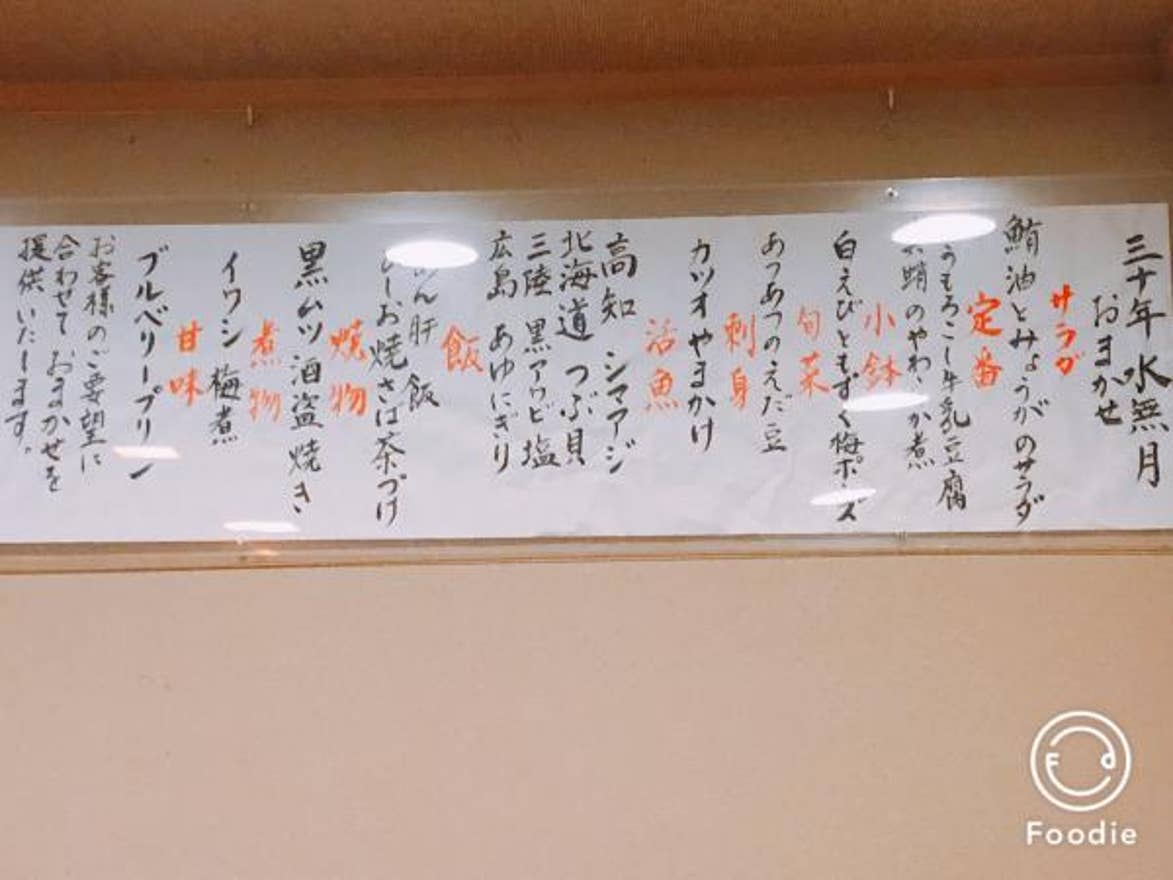 三十年 水無月
おまかせ
サラダ
鮪油とみょうがのサラダ
定番
うもろこし牛乳豆腐
蛸のやわらか煮
小鉢
白えびともずく梅ポンズ
旬菜
あつあつのえだ豆
刺身
カツオやまかけ
活魚
高知 シマアジ
北海道 つぶ貝
三陸 黒アワビ塩
広島 あゆにぎり
飯
肝 飯
お焼さば茶づけ
焼物
黒ムツ酒盗焼き
煮物
イワシ梅煮
甘味
ブルベリープリン
お客様のご要望に
合わせて おまかせを
提供いたします。
Foodie